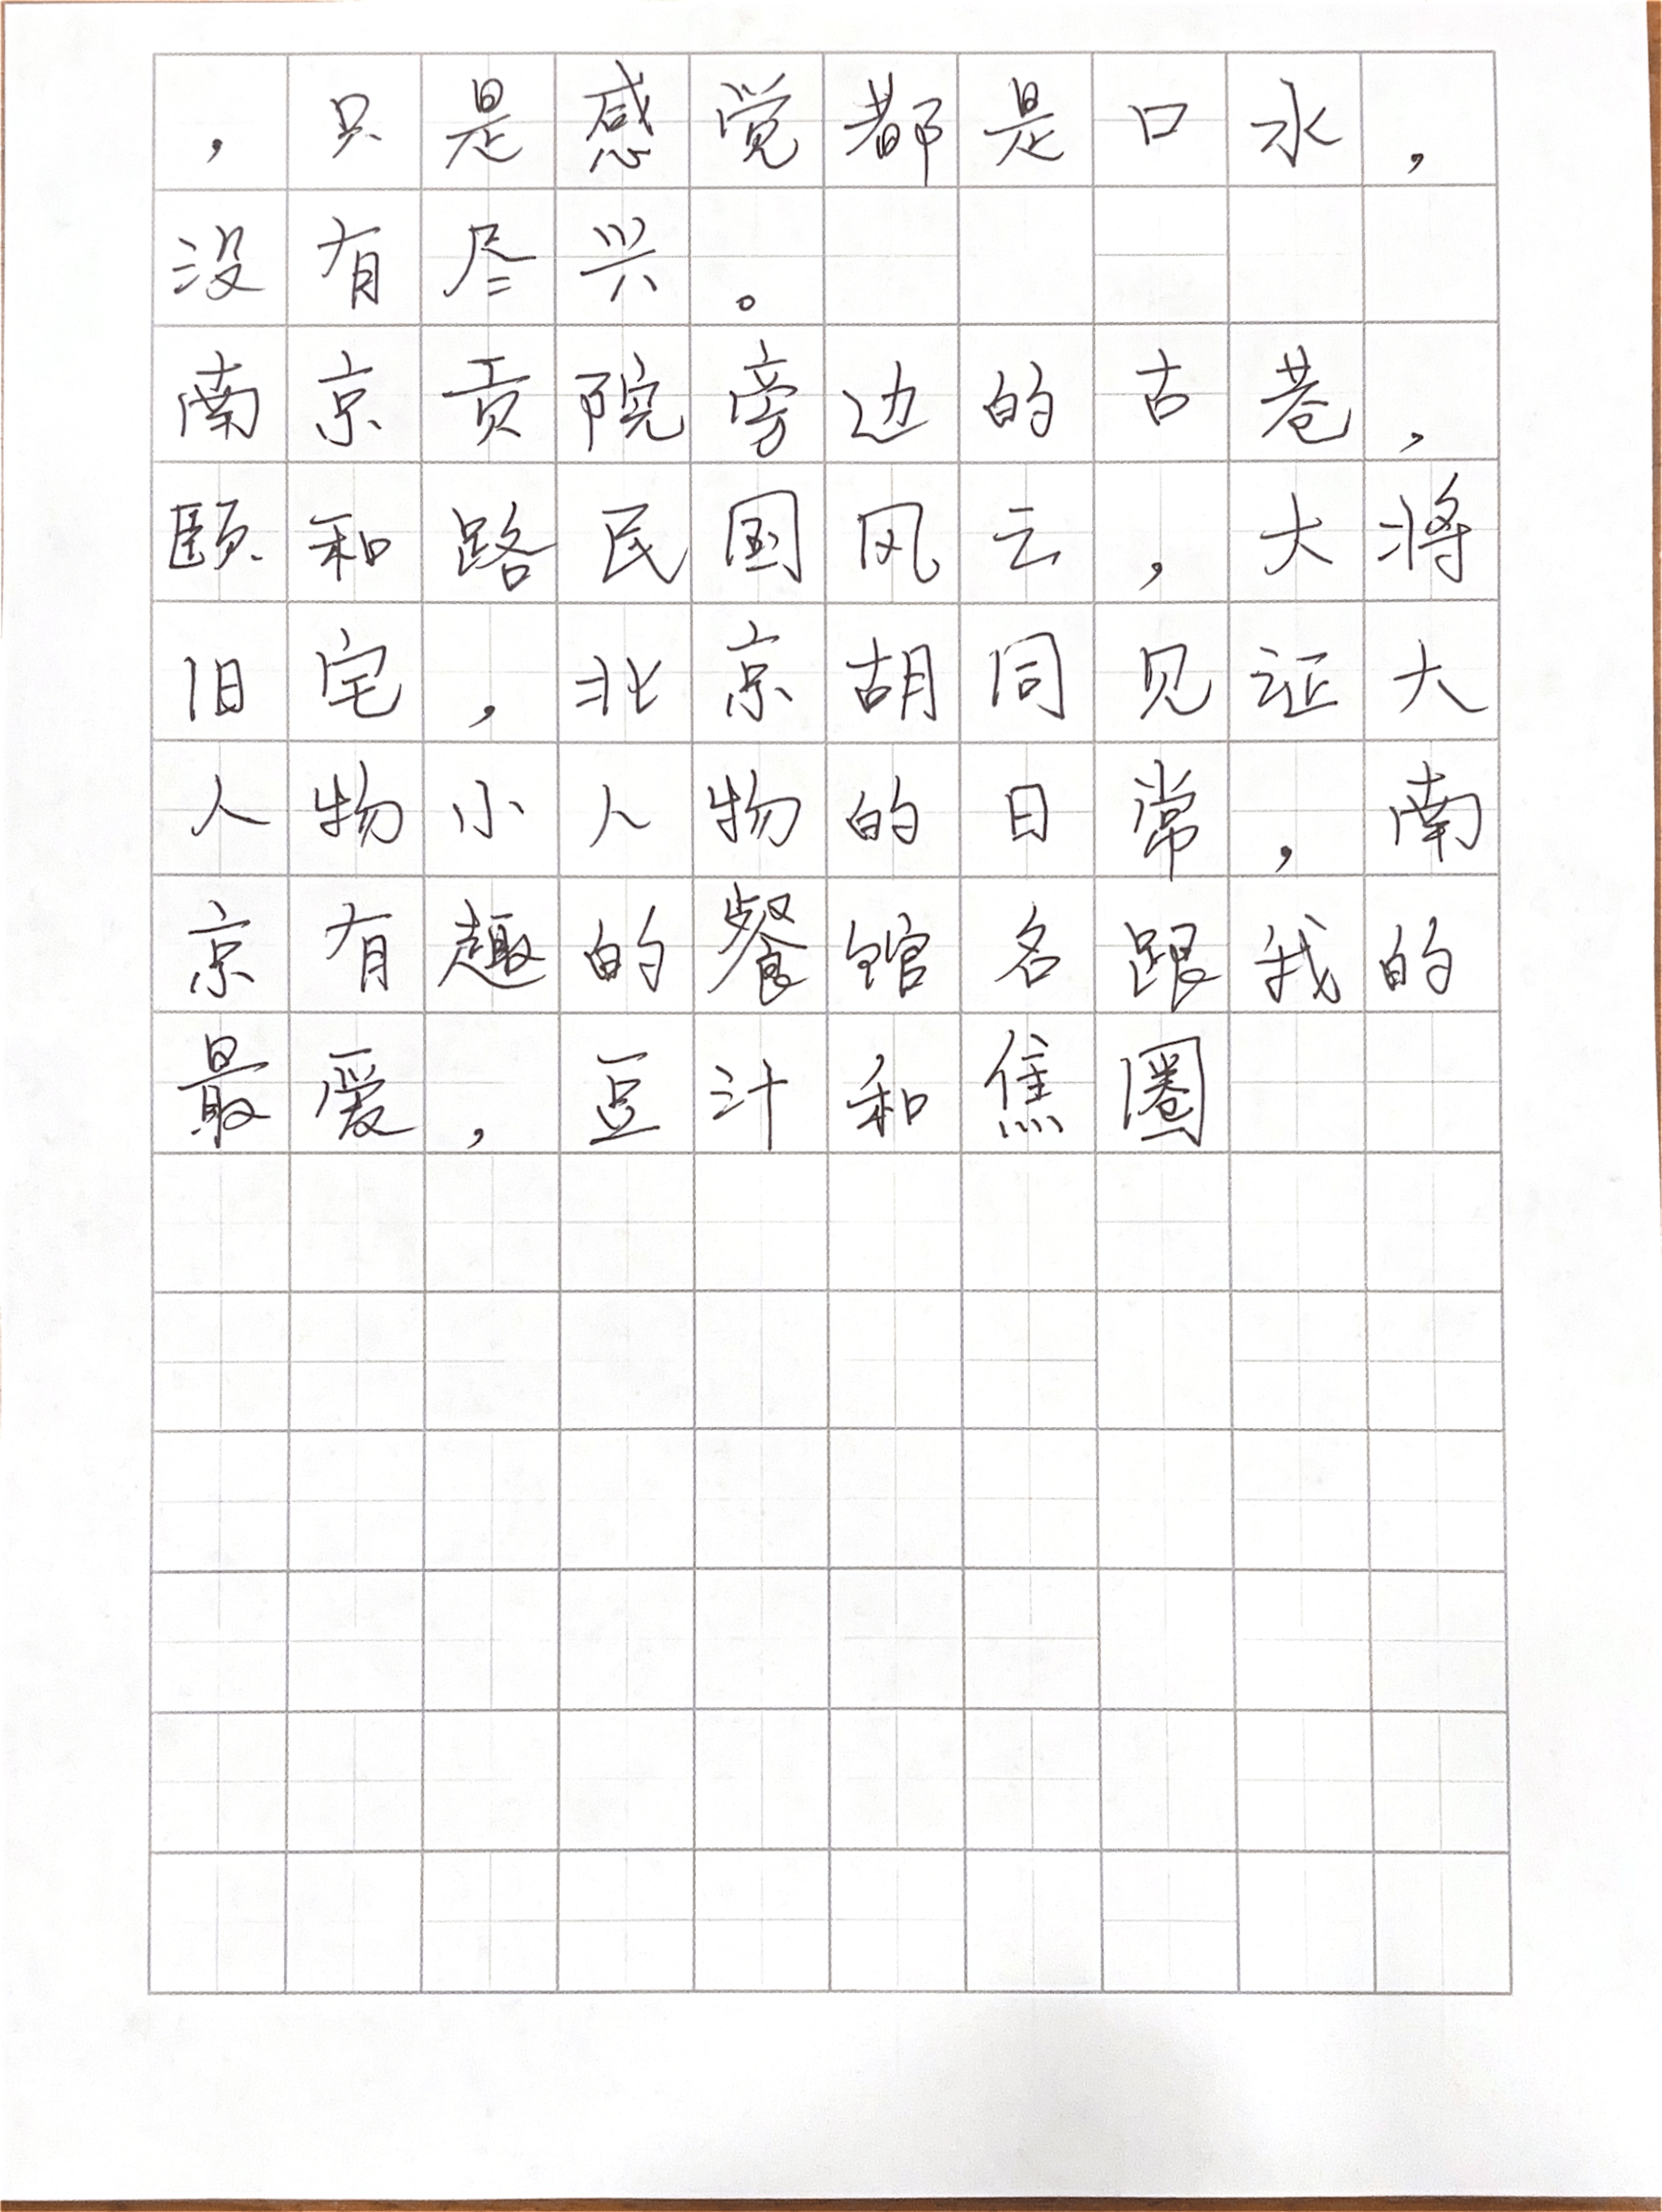 ，只是感觉都是口水，
没有尽兴。
南京贡院旁边的古巷，
颐和路民国风云，大将
旧宅，北京胡同见证大
人物小人物的日常，南
京有趣的餐馆名跟我的
最爱，豆汁和焦圈